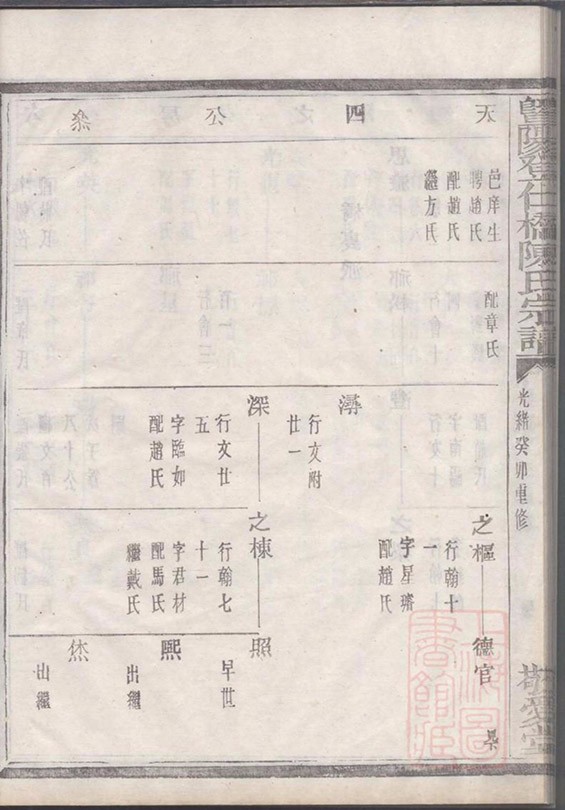 暨陽孝仁橋陳氏宗譜
光緒癸卯重修
敬愛堂
天四公派
邑庠生
聘趙氏
配趙氏
繼方氏
配章氏
潯
行文附
廿一
深
行文廿
五
字臨如
配趙氏
之樞
行翰十
一
配趙氏
之棟
行翰七
十一
字君材
配馬氏
繼戴氏
德官
照
早世
熙
出繼
出繼
上海圖
書館藏